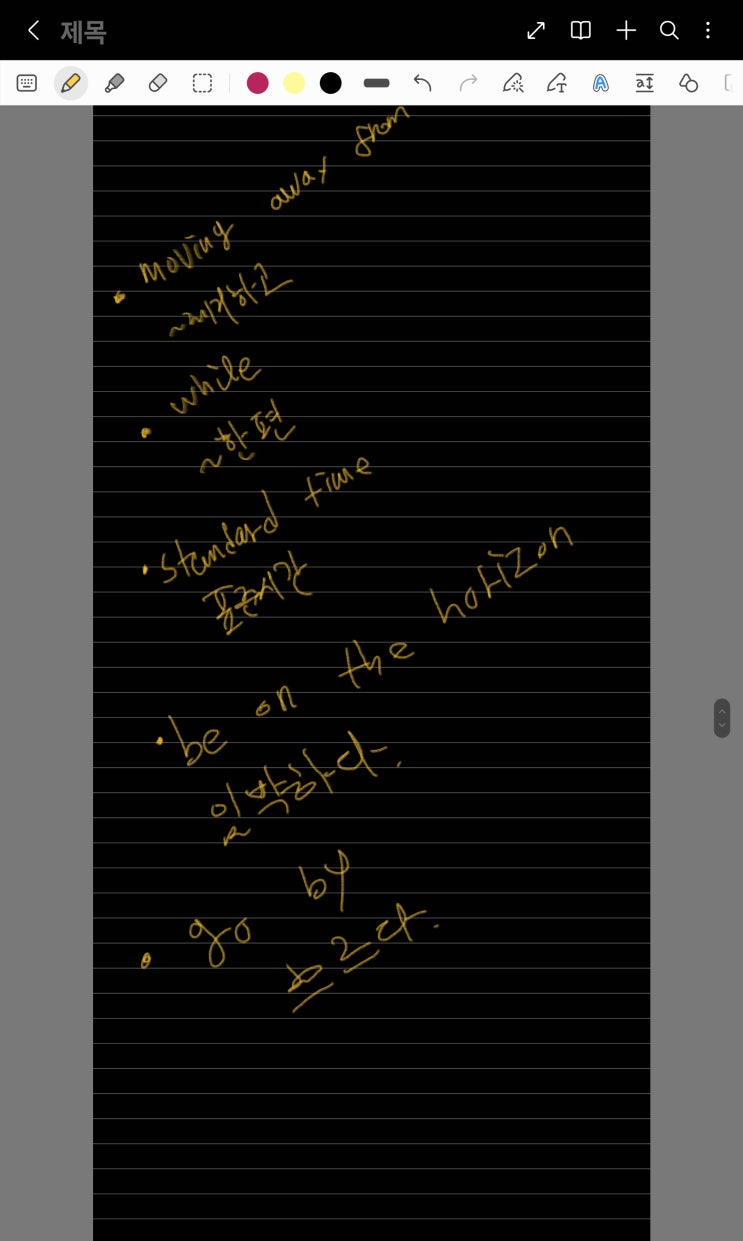 제목
moving away from
~제거하고
while
~한편
standard time
표준시간
be on the horizon
임박하다.
go by
흐르다.